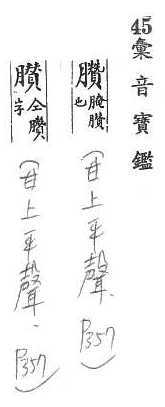 45彙音寶鑑
臢 腌臢也
(甘上平聲、P357)
仝臢字
(甘上平聲、P357)